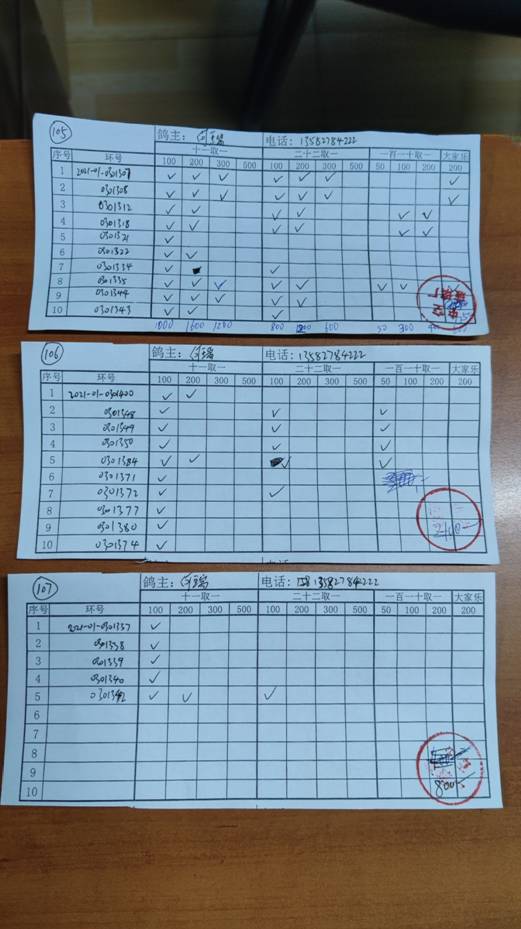 105 鸽主: 电话: 13582784222
序号 环号 十一取一 二十二取一 一百一十取一 大家乐
100 200 300 500 100 200 300 500 50 100 200 200
1 2021-01-0301307 ✓ ✓ ✓ ✓ ✓ ✓ ✓
2 0301308 ✓ ✓ ✓ ✓ ✓ ✓ ✓
3 0301312 ✓ ✓ ✓ ✓ ✓ ✓
4 0301318 ✓ ✓ ✓ ✓ ✓ ✓
5 0301321 ✓
6 0301322 ✓ ✓
7 0301334 ✓ ✓
8 0301335 ✓ ✓ ✓ ✓ ✓ ✓ ✓
9 0301344 ✓ ✓ ✓ ✓ ✓
10 0301343 ✓ ✓ ✓
1000 1600 1200 800 600 50 300
106 鸽主: 电话: 13582784222
序号 环号 十一取一 二十二取一 一百一十取一 大家乐
100 200 300 500 100 200 300 500 50 100 200 200
1 2021-01-0301400 ✓ ✓
2 0301348 ✓ ✓ ✓
3 0301349 ✓ ✓ ✓
4 0301350 ✓ ✓ ✓
5 0301384 ✓ ✓ ✓ ✓
6 0301371 ✓
7 0301372 ✓ ✓
8 0301377 ✓
9 0301380 ✓
10 0301374 ✓
107 鸽主: 电话: 13582784222
序号 环号 十一取一 二十二取一 一百一十取一 大家乐
100 200 300 500 100 200 300 500 50 100 200 200
1 2021-01-0301337 ✓
2 0301338 ✓
3 0301339 ✓
4 0301340 ✓
5 0301342 ✓ ✓ ✓
6
7
8
9
10
800